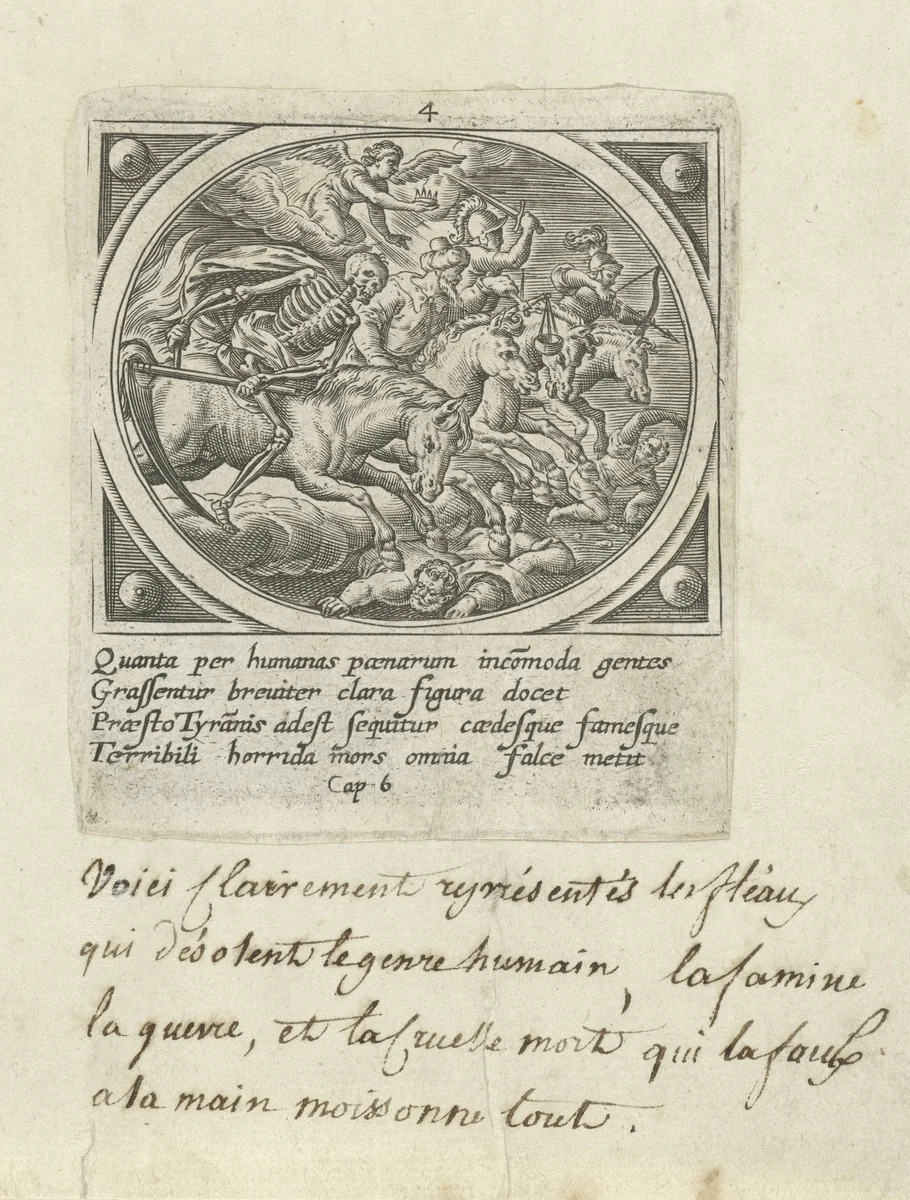 4
Quanta per humanas pœnarum incōmoda gentes
Graſſentur breuiter clara figura docet
Præſto Tyrānis adeſt ſequūtur cædesque fameſque
Terribili horrida mors omnia falce metit
Cap 6
Voici Clairement représentés les fléaux
qui désolent le genre humain, la famine
la guerre, et la Cruelle mort qui la faulx
a la main moissonne tout.